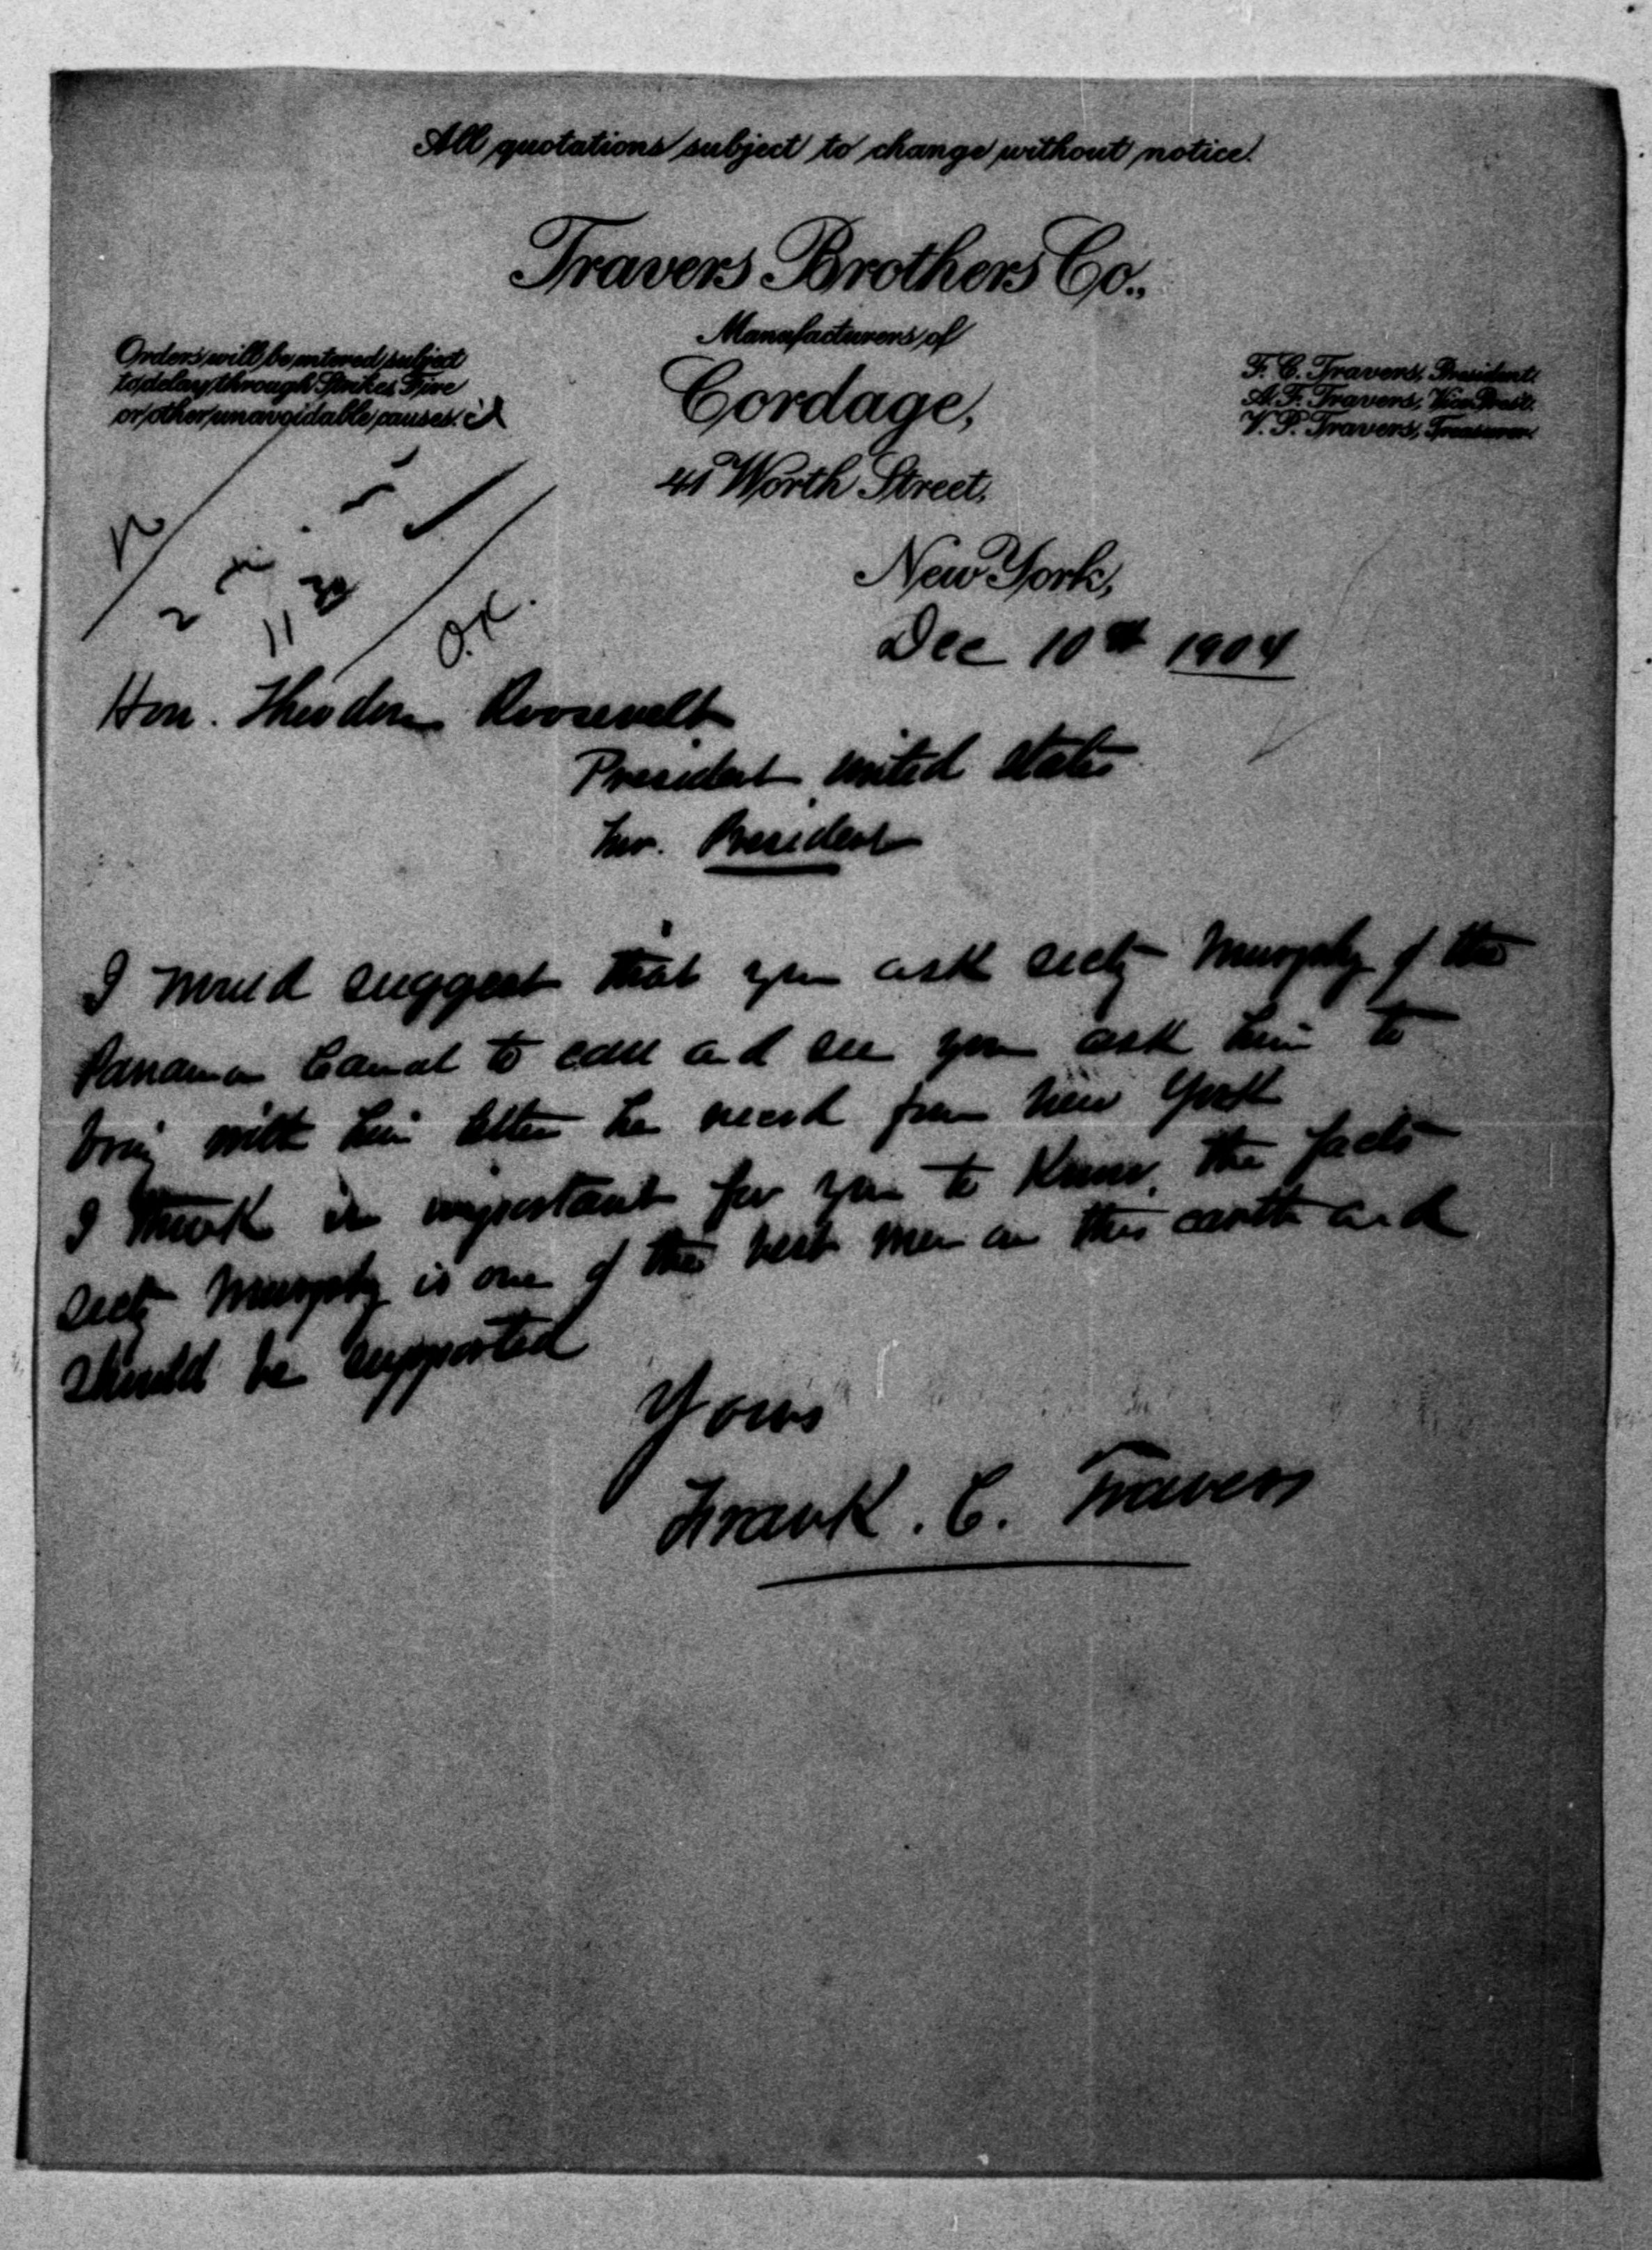 All quotations subject to change without notice.
Travers Brothers Co.,
Manufacturers of
Cordage,
41 Worth Street,
New York,
Orders will be entered subject
to delay through Strikes, Fire
or other unavoidable causes.
F. C. Travers, President.
A. F. Travers, Vice Prest.
V. P. Travers, Treasurer.
O.K.
Dec 10th 1904
Hon. Theodore Roosevelt
President United States
Mr. President
I would suggest that you ask Secty Murphy of the
Panama Canal to call and see you ask him to
bring with him letter he recvd from New York
I think it important for you to know the facts
Secty Murphy is one of the best men on this earth and
should be supported
Yours
Frank. C. Travers